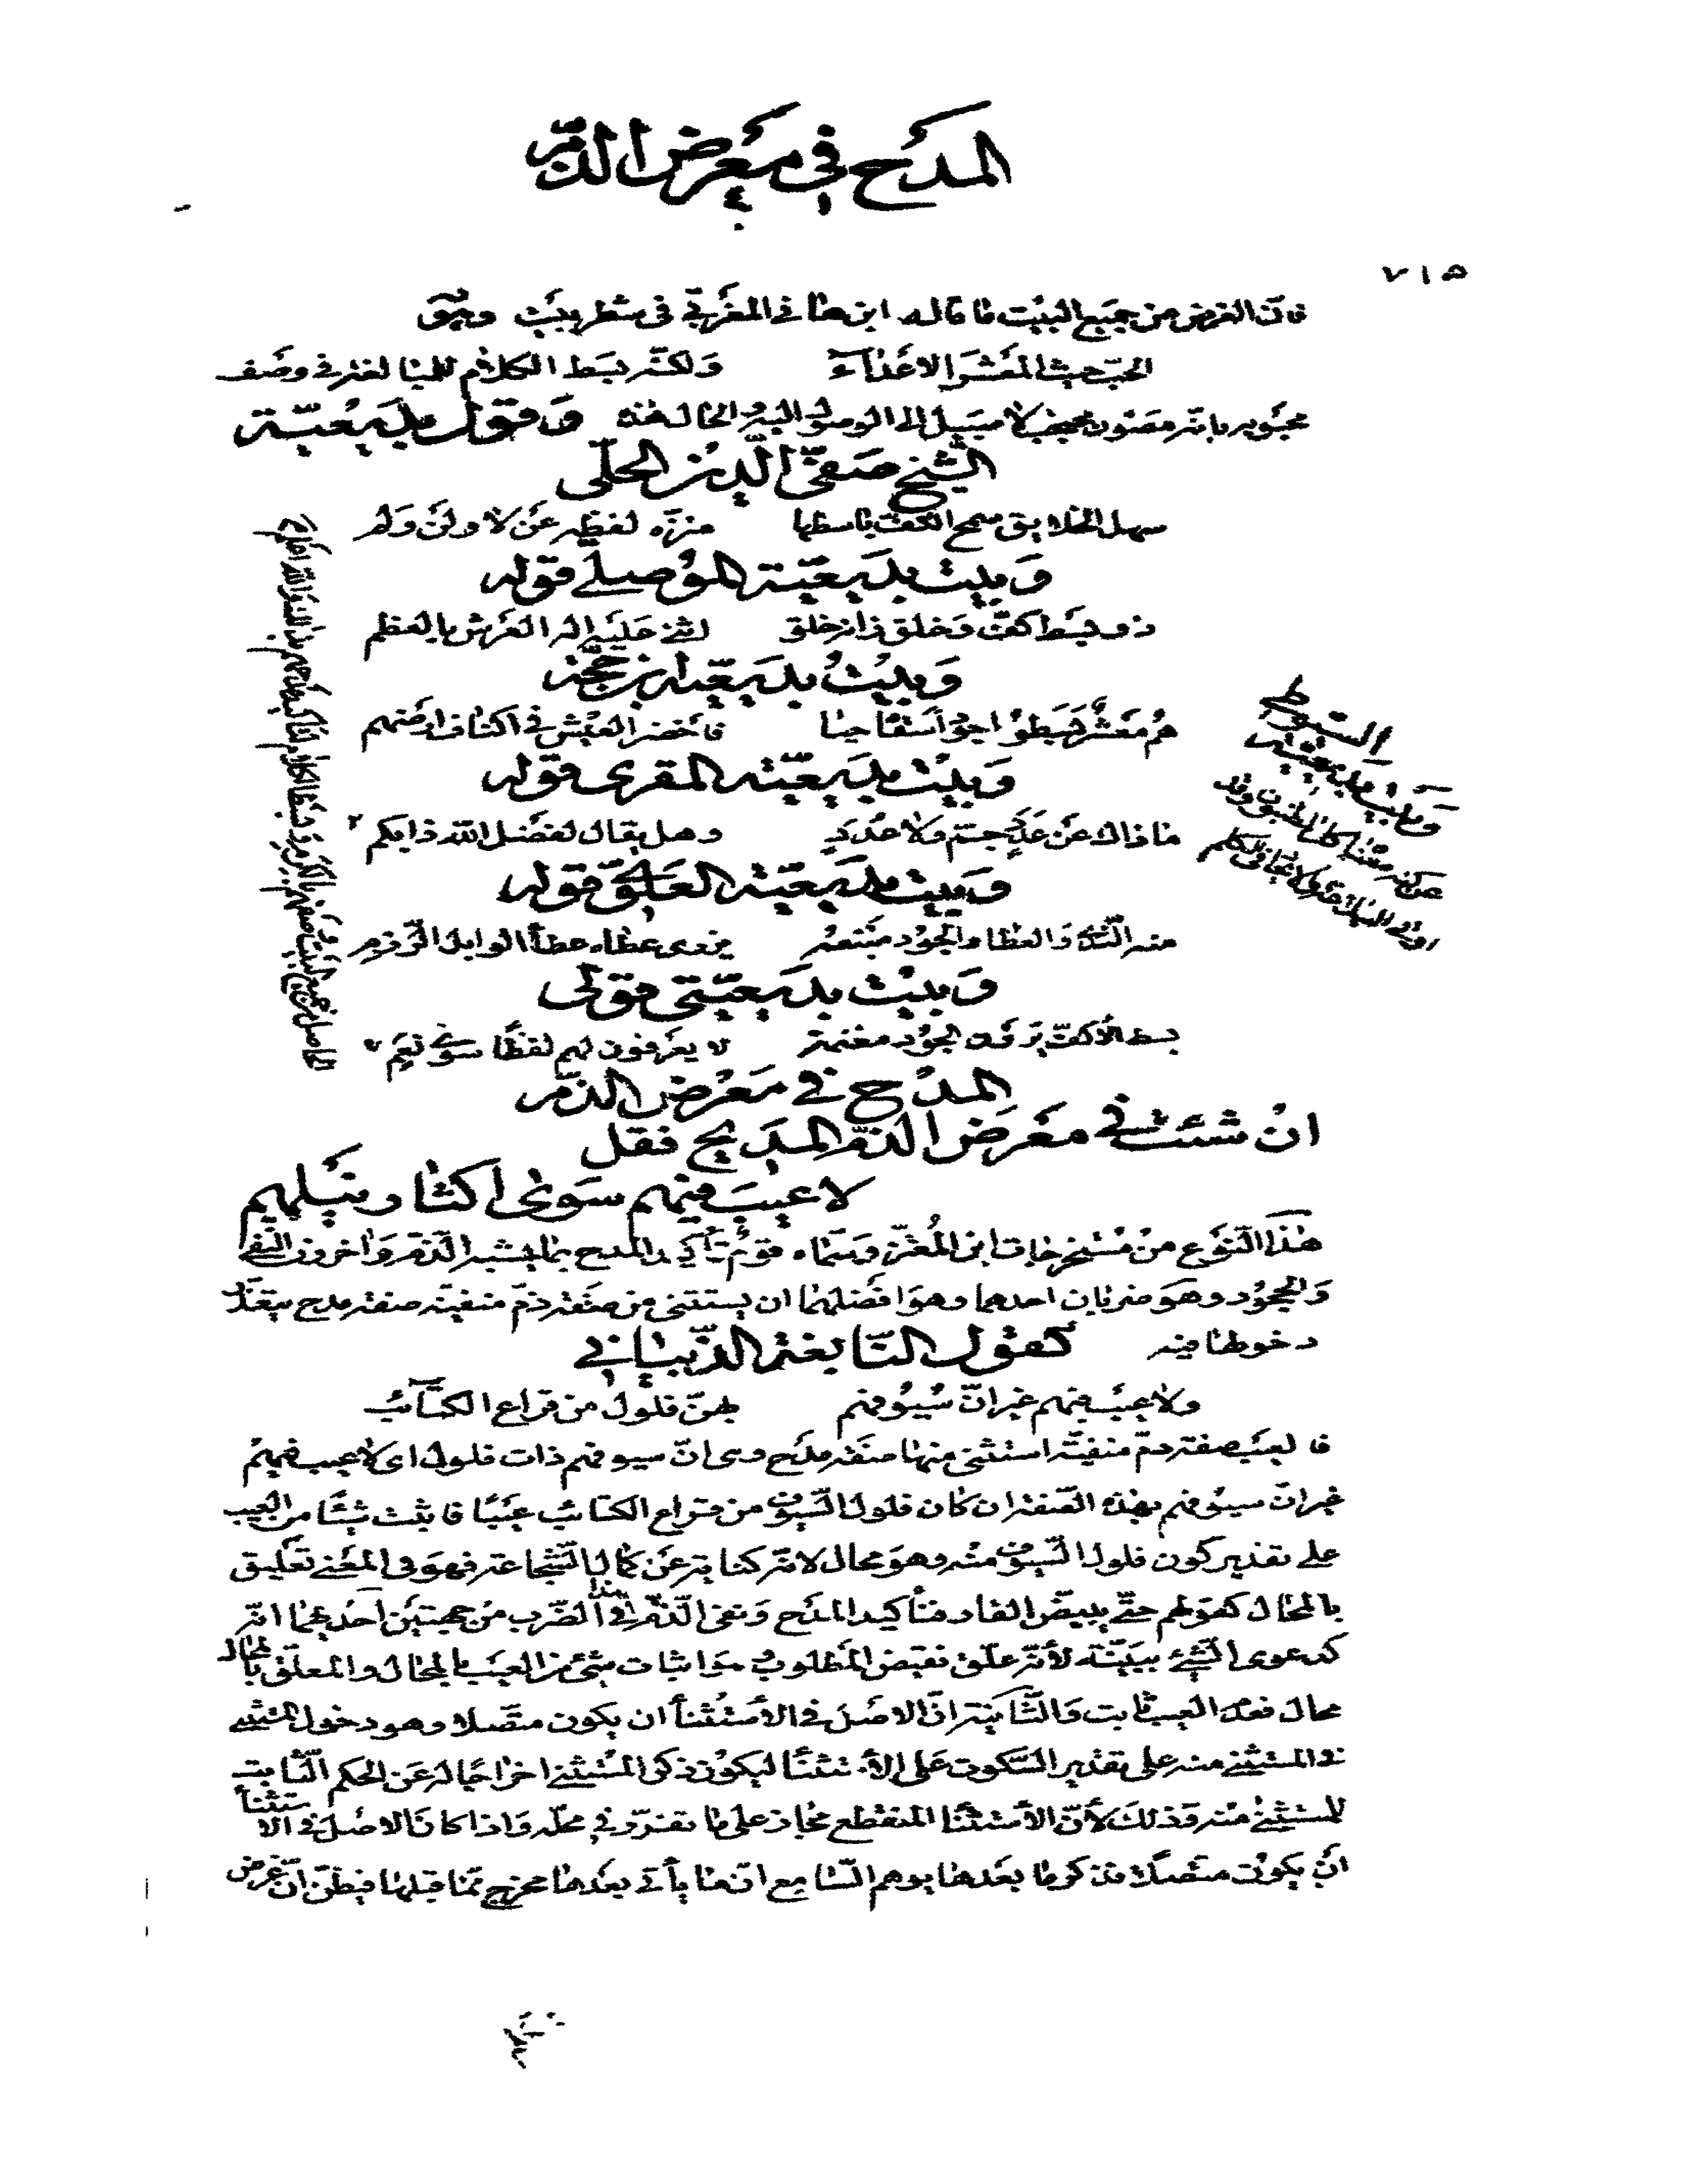 المدح في معرض الذم
٧١٥
فان الغرض من جميع البيت ما قاله ابن هاني المغربي في شطر بيت وهو
الحب حيث المعشر الاعداء ولكنه بسط الكلام للمبالغة في وصف
محبوبه بانه مصون محجب لا سبيل الى الوصول اليه والحال هذه وقول بديعية
الشيخ صفي الدين الحلي
سهل الخلايق سمح الكف باسطها منزه لفظه عن لا ولن ولم
وبيت بديعية الموصلي قوله
ذو بسط كف وخلق زانه خلق اثنى عليه اله العرش بالعظم
وبيت بديعية ابن حجة
هم معشر بسطوا جودا سقاه حيا فاخضر العيش في اكناف ارضهم
وبيت بديعية المقري قوله
ماذاك عن عدد جم ولا عدد وهل يقال لفضل الله ذا بكم
وبيت بديعية العلوي قوله
منه الندى والعطا والجود منتصر يزرى عطاه عطاء الوابل الرزم
وبيت بديعيتي قولي
بسط الاكف يرون الجود مغنمة لا يعرفون لهم لفظا سوى نعم
السيوطي
وبيت بديعيته
المدح في معرض الذم
ان شئت في معرض الذم المديح فقل
لا عيب فيهم سوى اكثار نيلهم
هذا النوع من مستخرجات ابن المعتز وسماه قوم تأكيد المدح بما يشبه الذم وآخرون النفي
والجحود وهو ضربان احدهما وهو افضلهما ان يستثنى من صفة ذم منفية صفة مدح بتقدير
دخولها فيه كقول النابغة الذبياني
ولا عيب فيهم غير ان سيوفهم بهن فلول من قراع الكتائب
فالعيب صفة ذم منفية استثنى منها صفة مدح وهى ان سيوفهم ذات فلول اى لا عيب فيهم
غير ان سيوفهم بهذه الصفة ان كان فلول السيوف من قراع الكتائب عيبا فاثبت شيئا من العيب
على تقدير كون فلول السيوف منه وهو محال لانه كناية عن كمال الشجاعة فهو في المعنى تعليق
بالمحال كقولهم حتى يبيض القار فتأكيد المدح ونفى الذم في هذا الضرب من جهتين احديهما انه
كدعوى الشيء ببينة لأنه علق نقيض المطلوب وهو اثبات شيء من العيب بالمحال والمعلق بالمحال
محال فعدم العيب ثابت والثانية ان الاصل في الاستثناء ان يكون متصلا وهو دخول المستثنى
في المستثنى منه على تقدير السكوت على الاستثناء ليكون ذكر المستثنى اخراجا له عن الحكم الثابت
للمستثنى منه وذلك لأن الاستثناء المنقطع مجاز على ما تقرر في محله واذا كان الاصل في الاستثناء
ان يكون متصلا فذكر ما بعدها يوهم السامع ان ما يأتي بعدها مخرج مما قبلها فيظن ان غرض